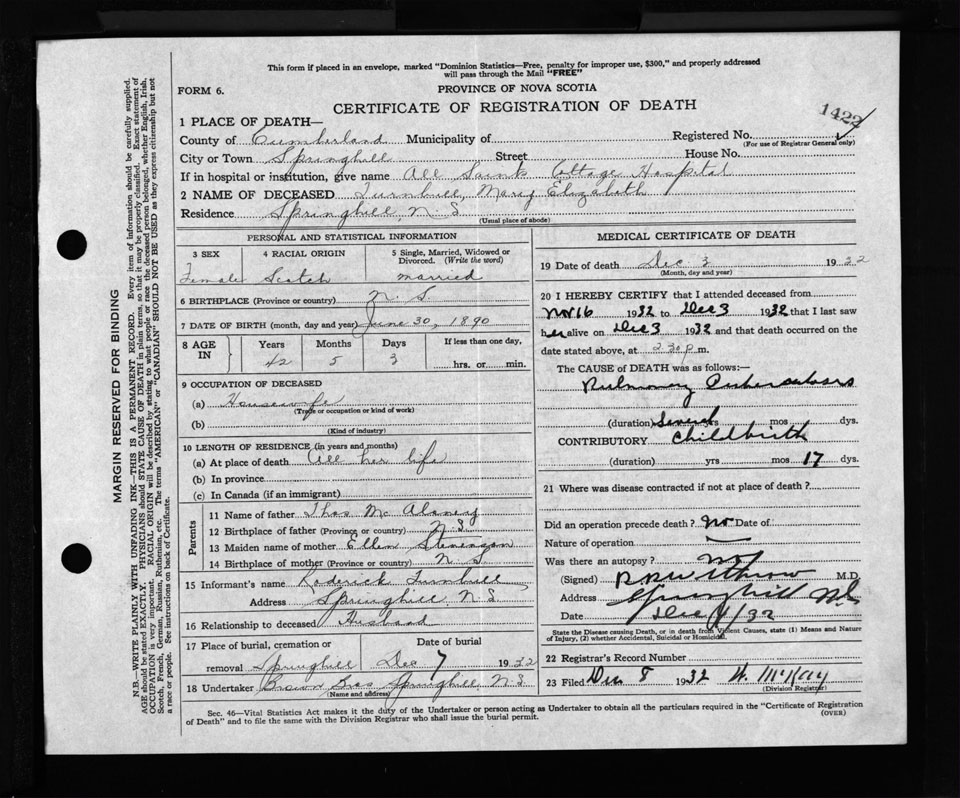 This form if placed in an envelope, marked "Dominion Statistics—Free, penalty for improper use, $300," and properly addressed
will pass through the Mail "FREE"
FORM 6.
PROVINCE OF NOVA SCOTIA
CERTIFICATE OF REGISTRATION OF DEATH
1422
1 PLACE OF DEATH—
County of Cumberland Municipality of Registered No.
(For use of Registrar General only)
City or Town Springhill Street House No.
If in hospital or institution, give name All Saints Cottage Hospital
2 NAME OF DECEASED Turnbull, Mary Elizabeth
Residence Springhill, N. S.
(Usual place of abode)
PERSONAL AND STATISTICAL INFORMATION
3 SEX 4 RACIAL ORIGIN 5 Single, Married, Widowed or Divorced. (Write the word)
Female Scotch married
6 BIRTHPLACE (Province or country) N. S.
7 DATE OF BIRTH (month, day and year) June 30, 1890
8 AGE IN Years Months Days If less than one day,
42 5 3 hrs. or min.
9 OCCUPATION OF DECEASED
(a) Housewife
(Trade or occupation or kind of work)
(b)
(Kind of industry)
10 LENGTH OF RESIDENCE (in years and months)
(a) At place of death All her life
(b) In province
(c) In Canada (if an immigrant)
Parents
11 Name of father Thos
12 Birthplace of father (Province or country) N S
13 Maiden name of mother Ellen
14 Birthplace of mother (Province or country) N S
15 Informant's name Roderick Turnbull
Address Springhill, N. S.
16 Relationship to deceased Husband
17 Place of burial, cremation or Date of burial
removal Springhill Dec 7 1932
18 Undertaker Brown Bros Springhill, N. S.
(Name and address)
MEDICAL CERTIFICATE OF DEATH
19 Date of death Dec 3 1932
(Month, day and year)
20 I HEREBY CERTIFY that I attended deceased from
Nov 16 1932 to Dec 3 1932 that I last saw
her alive on Dec 3 1932 and that death occurred on
date stated above, at 2.30 p. m.
The CAUSE OF DEATH was as follows:—
Pulmonary Tuberculosis
(duration) Several yrs mos dys.
CONTRIBUTORY Childbirth
(duration) yrs mos 17 dys.
21 Where was disease contracted if not at place of death?
Did an operation precede death? No Date of
Nature of operation
Was there an autopsy? no
(Signed) Withrow M.D.
Address Springhill N.S.
Date Dec 4/32
State the Disease causing Death, or in death from Violent Causes, state (1) Means and Nature
of Injury, (2) whether Accidental, Suicidal or Homicidal.
22 Registrar's Record Number
23 Filed Dec 8 1932 H. McKay
(Division Registrar)
Sec. 46—Vital Statistics Act makes it the duty of the Undertaker or person acting as Undertaker to obtain all the particulars required in the "Certificate of Registration
of Death" and to file the same with the Division Registrar who shall issue the burial permit.
(OVER)
MARGIN RESERVED FOR BINDING
N.B.—WRITE PLAINLY WITH UNFADING INK—THIS IS A PERMANENT RECORD. Every item of information should be carefully supplied.
AGE should be stated EXACTLY. PHYSICIANS should STATE CAUSE OF DEATH in plain terms, so that it may be properly classified. Exact statement of
OCCUPATION is very important. RACIAL ORIGIN will be described by stating to what people or race the deceased person belonged, whether English, Irish,
Scotch, French, German, Russian, Ruthenian, etc. The terms "AMERICAN" or "CANADIAN" SHOULD NOT BE USED as they express citizenship but not
a race or people. See instructions on back of Certificate.